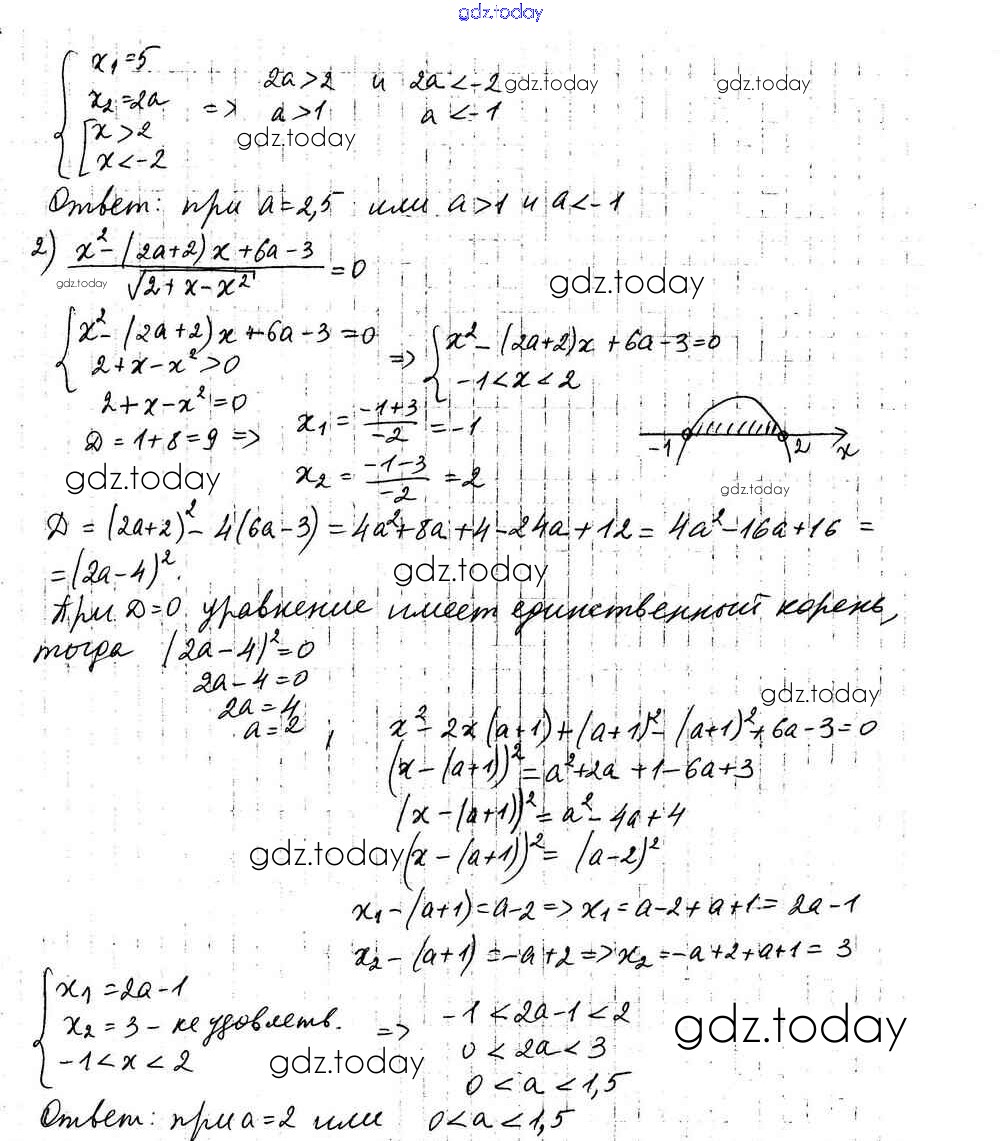 gdz.today
x₁=5
x₂=2a
x>2
x<-2
=> 2a>2 и 2a<-2 gdz.today gdz.today
a>1 a<-1
gdz.today
Ответ: при a=2,5 или a>1 и a<-1
2) (x²-(2a+2)x+6a-3)/√(2+x-x²) =0
gdz.today gdz.today
{x²-(2a+2)x+6a-3=0
2+x-x²>0
=> {x²-(2a+2)x+6a-3=0
-1<x<2
2+x-x²=0
Д=1+8=9 => x₁= (-1+3)/-2 =-1
x₂= (-1-3)/-2 =2
-1 2 x
gdz.today gdz.today
Д=(2a+2)²-4(6a-3)=4a²+8a+4-24a+12=4a²-16a+16=
=(2a-4)².
gdz.today
При Д=0 уравнение имеет единственный корень,
тогда (2a-4)²=0
2a-4=0
2a=4
a=2 ;
gdz.today
x²-2x(a+1)+(a+1)²-(a+1)²+6a-3=0
(x-(a+1))²=a²+2a+1-6a+3
(x-(a+1))²=a²-4a+4
gdz.today (x-(a+1))²=(a-2)²
x₁-(a+1)=a-2=>x₁=a-2+a+1=2a-1
x₂-(a+1)=-a+2=>x₂=-a+2+a+1=3
{x₁=2a-1
x₂=3-не удовлетв.
-1<x<2
=> -1<2a-1<2
0<2a<3
0<a<1,5
gdz.today gdz.today
Ответ: при a=2 или 0<a<1,5